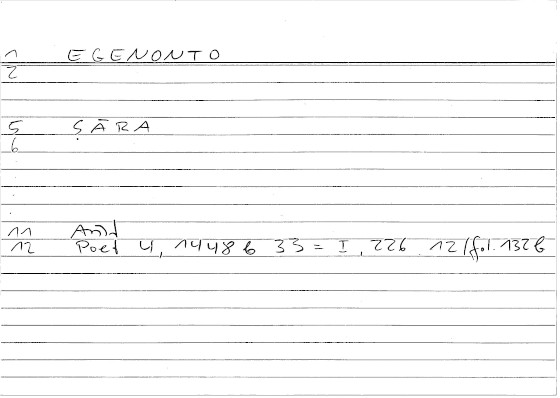 1 EGENONTO
2
5 ṢĀRA
6
11 Arist
12 Poet 4, 1448 b 33 = I, 226 12/fol. 132b